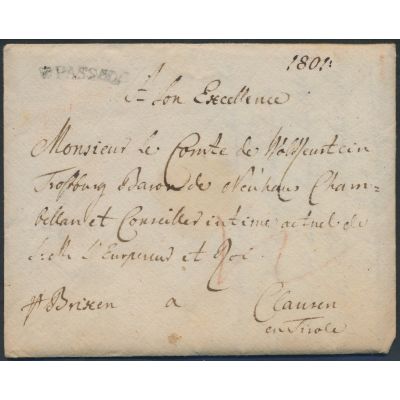 PASSAU
1801:
à Son Excellence
Monsieur le Comte de Wolkenstein
Trostburg Baron de Neuhaus Cham=
bellan et Conseiller intime actuel de
S: M: L'Empereur et Roi
pr Brixen a Clausen
en Tirole